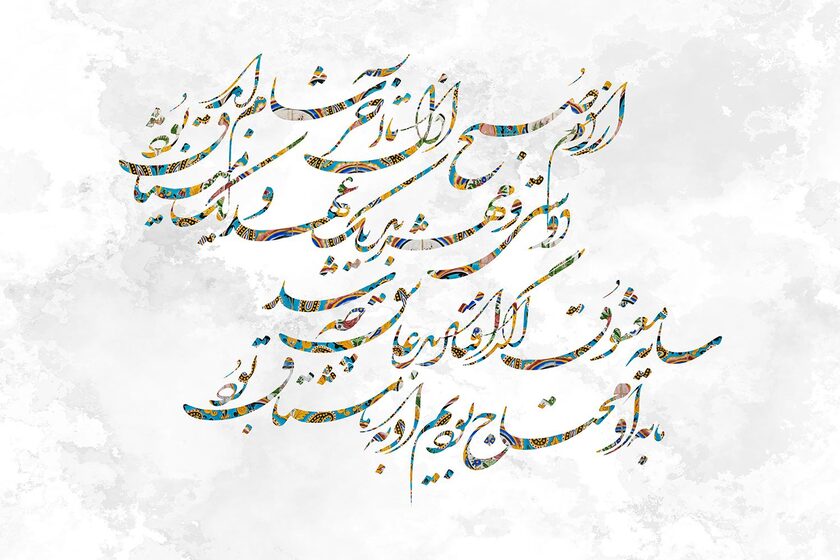 از دم صبح ازل تا آخر شام ابد
دوستی و مهر بر یک عهد و یک میثاق بود
سایه معشوق اگر افتاد بر عاشق چه شد
ما به او محتاج بودیم او به ما مشتاق بود